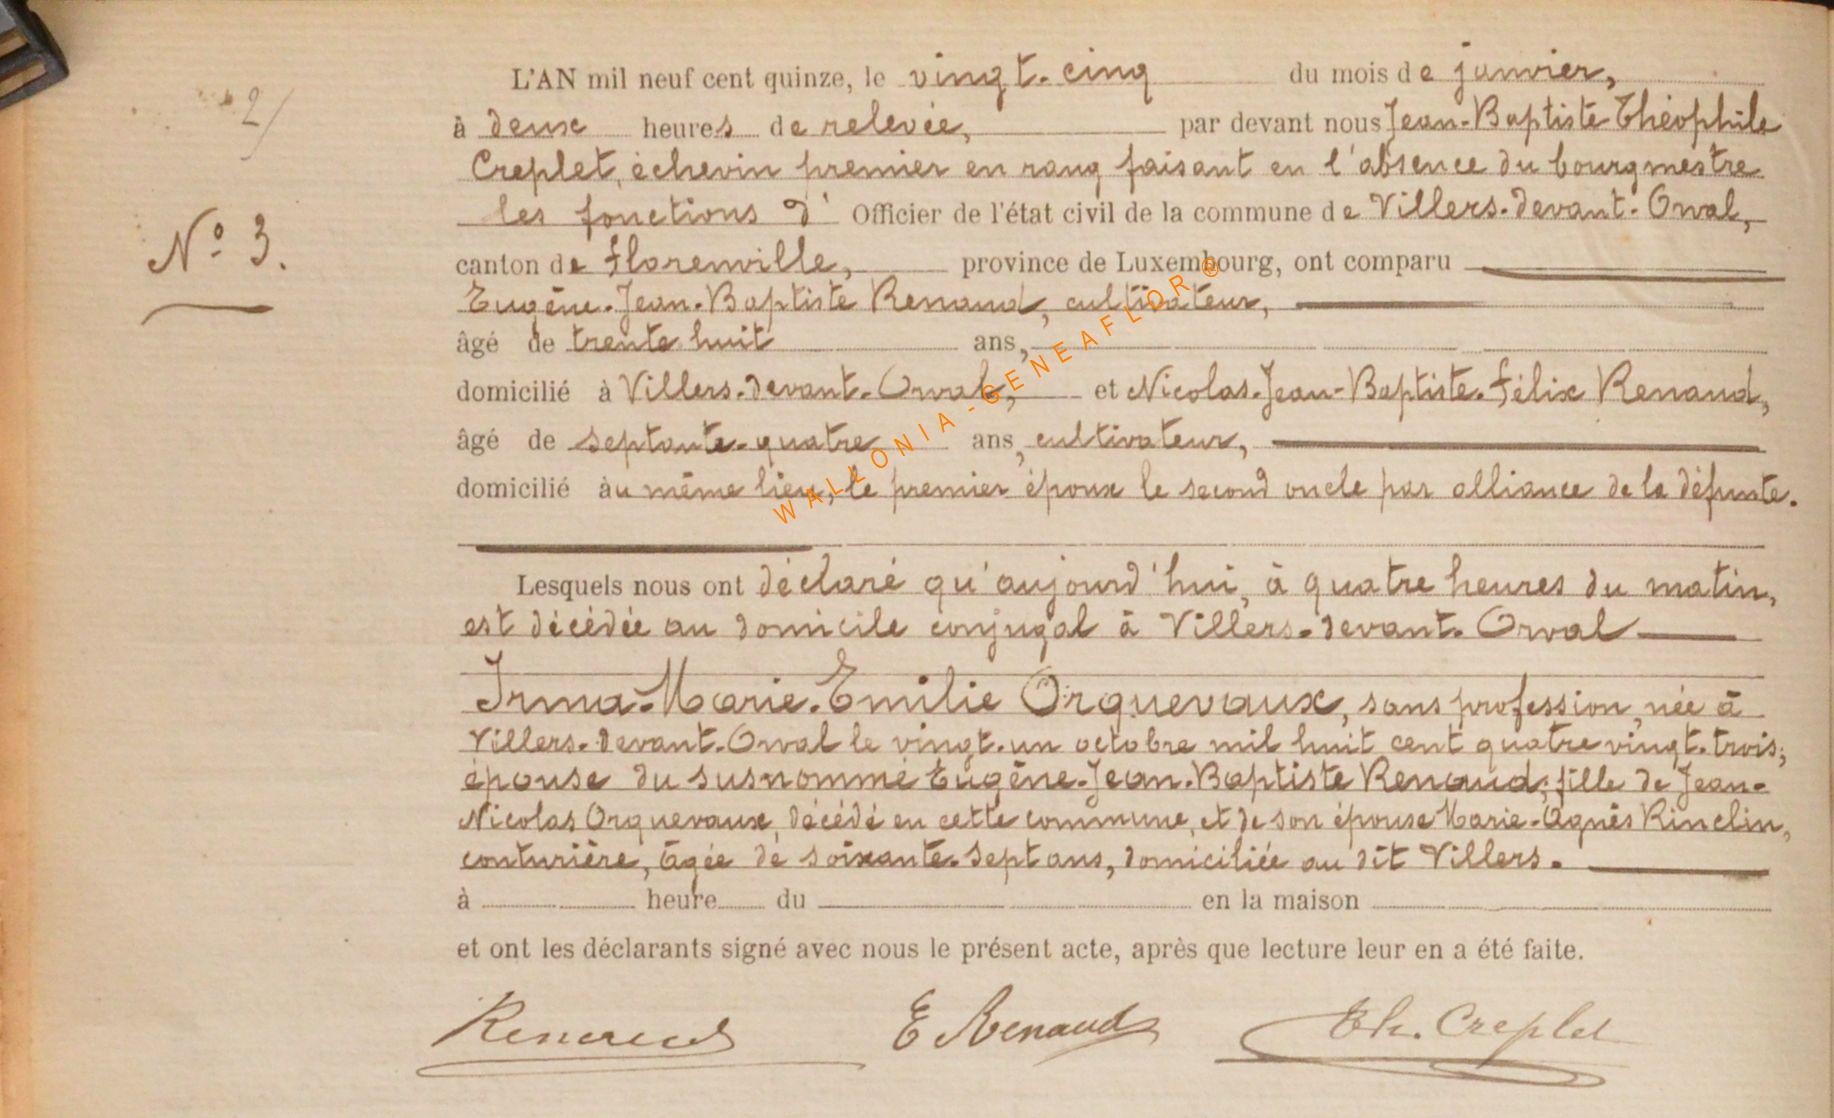 2/
L'AN mil neuf cent quinze, le vingt-cinq du mois de janvier,
à deux heures de relevée, par devant nous Jean-Baptiste Théophile
Creplet, échevin premier en rang faisant en l'absence du bourgmestre
les fonctions d' Officier de l'état civil de la commune de Villers-devant-Orval,
N° 3.
canton de Florenville, province de Luxembourg, ont comparu
Eugène-Jean-Baptiste Renaud, cultivateur,
âgé de trente huit ans,
domicilié à Villers-devant-Orval, et Nicolas-Jean-Baptiste-Félix Renaud,
âgé de septante-quatre ans, cultivateur,
domicilié au même lieu, le premier époux le second oncle par alliance de la défunte.
WALLONIA - GENEAFLOR ®
Lesquels nous ont déclaré qu'aujourd'hui, à quatre heures du matin,
est décédée au domicile conjugal à Villers-devant-Orval
Irma-Marie-Emilie Orquevaux, sans profession, née à
Villers-devant-Orval le vingt-un octobre mil huit cent quatre vingt-trois,
épouse du susnommé Eugène-Jean-Baptiste Renaud, fille de Jean-
Nicolas Orquevaux, décédé en cette commune, et de son épouse Marie-Agnès Rinclin,
couturière, âgée de soixante-sept ans, domiciliée au dit Villers.
à heure du en la maison
et ont les déclarants signé avec nous le présent acte, après que lecture leur en a été faite.
Renaud E Renaud Th. Creplet